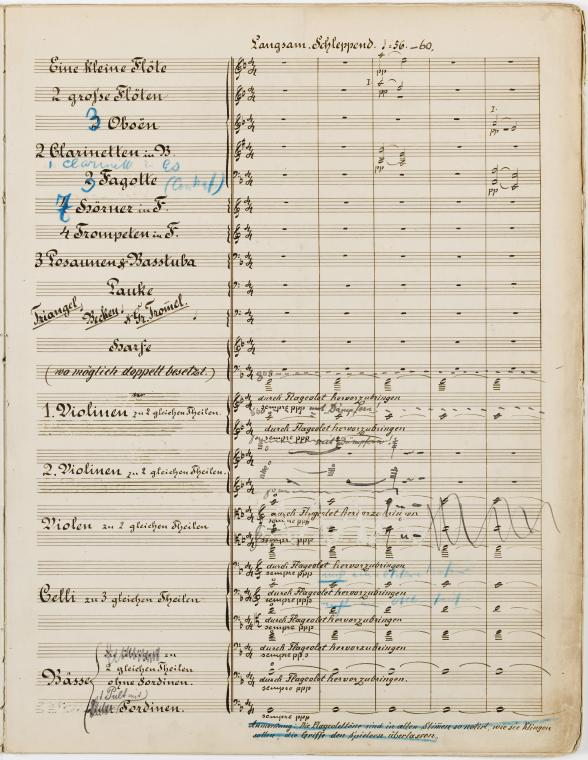 Langsam. Schleppend. ♩=56.–60.
Eine kleine Flöte
pp
I.
2 große Flöten
pp
I.
3 Oboën
pp
2 Clarinetten in B.
1 Clarinett in Es
pp
3 Fagotte (Contraf)
pp
7 Hörner in F.
4 Trompeten in F.
3 Posaunen & Basstuba
Pauke
Triangel, Becken, & Gr. Trommel.
Harfe
(wo möglich doppelt besetzt.)
durch Flageolet hervorzubringen
sempre ppp mit Dämpfern
1. Violinen zu 2 gleichen Theilen.
durch Flageolet hervorzubringen
sempre ppp mit Dämpfern
2. Violinen zu 2 gleichen Theilen.
durch Flageolet hervorzubringen
sempre ppp
Violen zu 2 gleichen Theilen
sempre ppp
durch Flageolet hervorzubringen
sempre ppp
durch Flageolet hervorzubringen
Celli zu 3 gleichen Theilen
sempre ppp
durch Flageolet hervorzubringen
sempre ppp
durch Flageolet hervorzubringen
zu
sempre ppp
2 gleichen Theilen
Bässe
ohne Sordinen.
durch Flageolet hervorzubringen.
sempre ppp
1 Pult mit
Sordinen.
sempre ppp
Anmerkung: Die Flageolettöne sind in allen Stimen so notirt, wie sie klingen
sollen; die Griffe den Spielern überlassen.